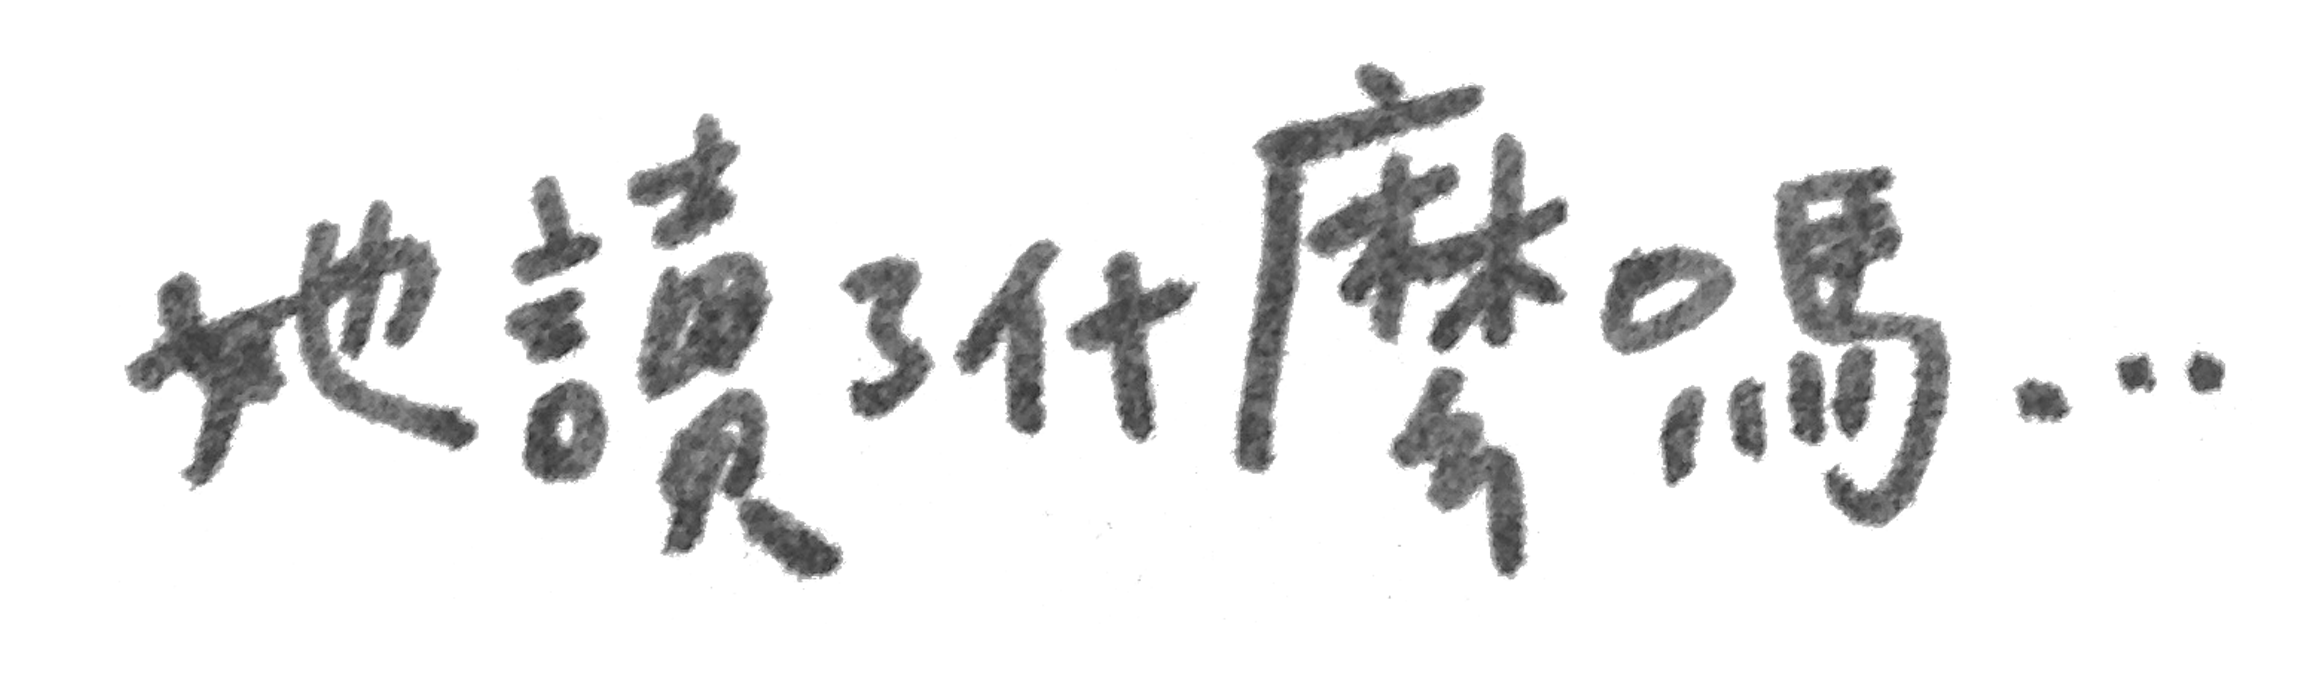 她讀了什麼嗎...